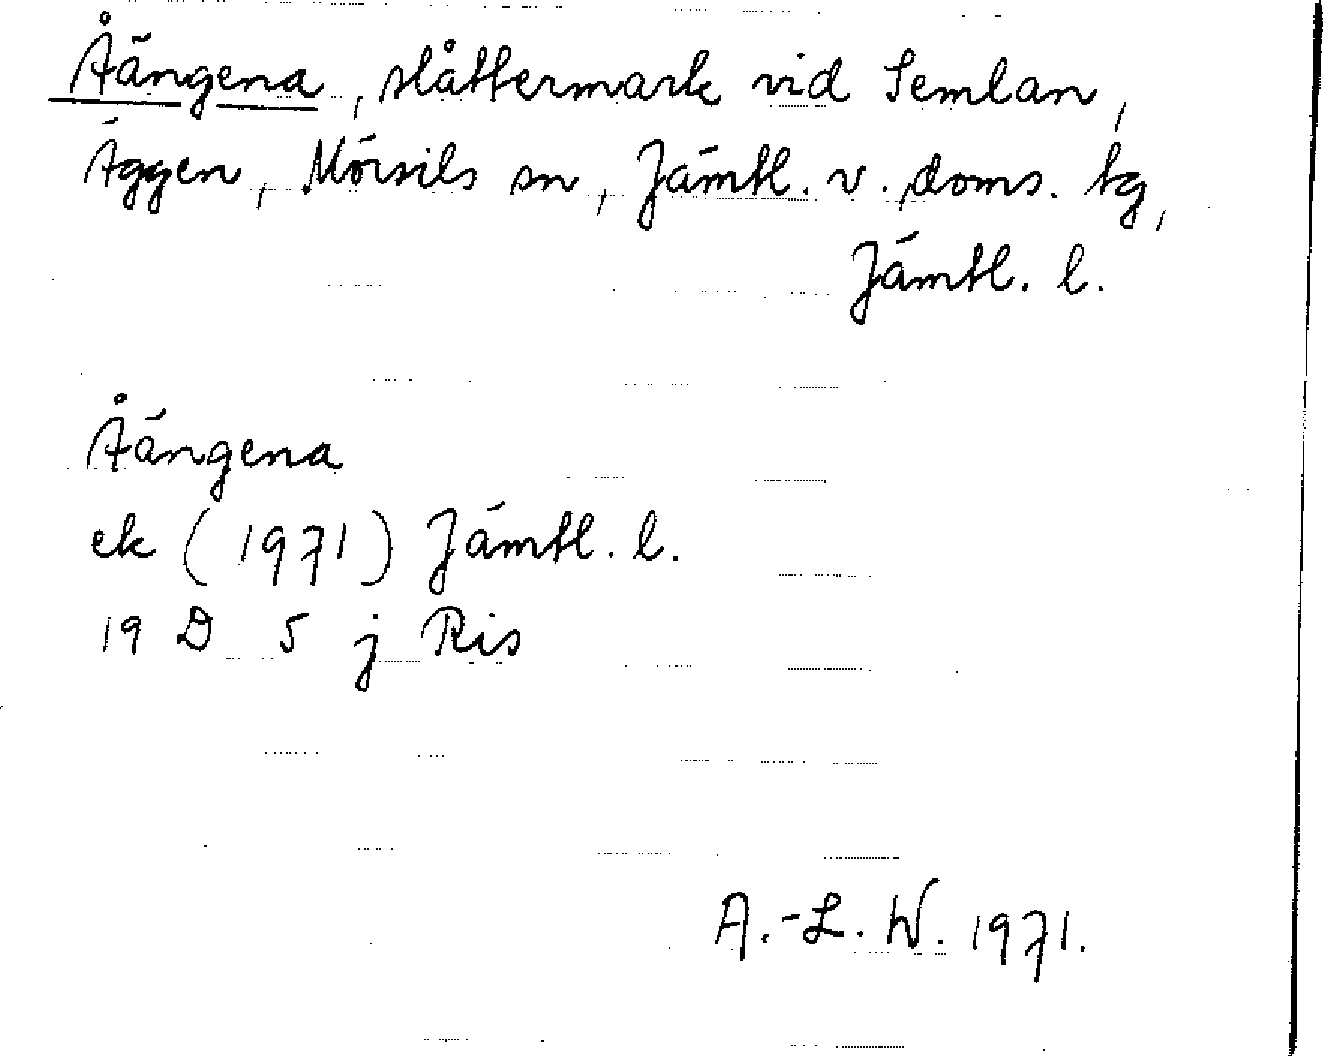 Åängena, slåttermark vid Semlan,
Äggen, Mörsils sn, Jämtl. v. doms. tg,
Jämtl. l.
Åängena
ek (1971) Jämtl. l.
19 D 5 j Ris
A.-L. W. 1971.